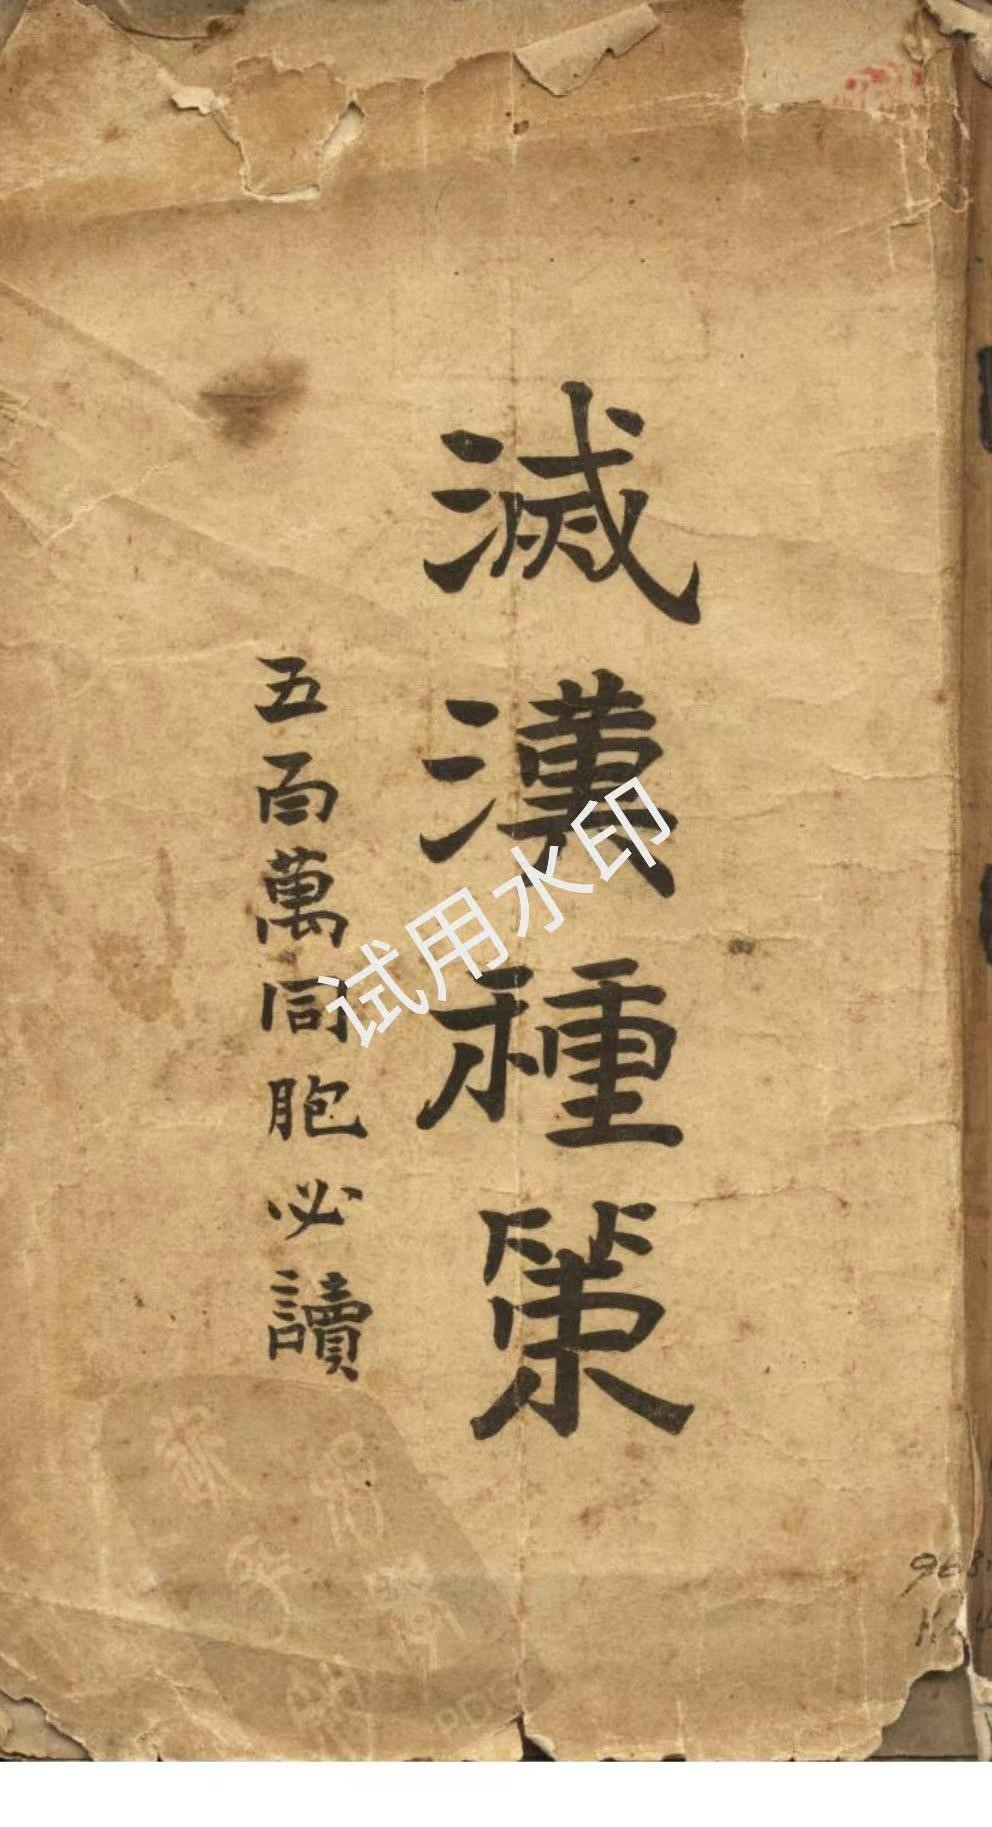 滅漢種策
五百萬同胞必讀
试用水印
963